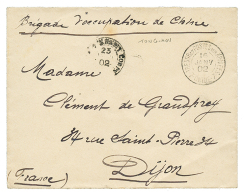 Brigade d'occupation de Chine
23
02
TONG-KOU
02
Madame
Clément de Grandprey
rue Saint-Pierre
Dijon
(France)